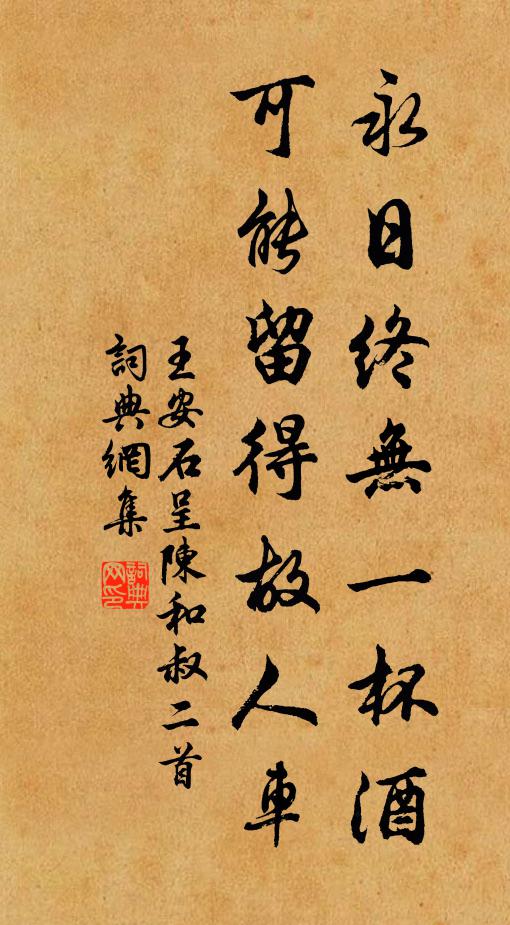 永日終無一杯酒
可能留得故人車
王安石呈陳和叔二首
詞典網集
詞典網印